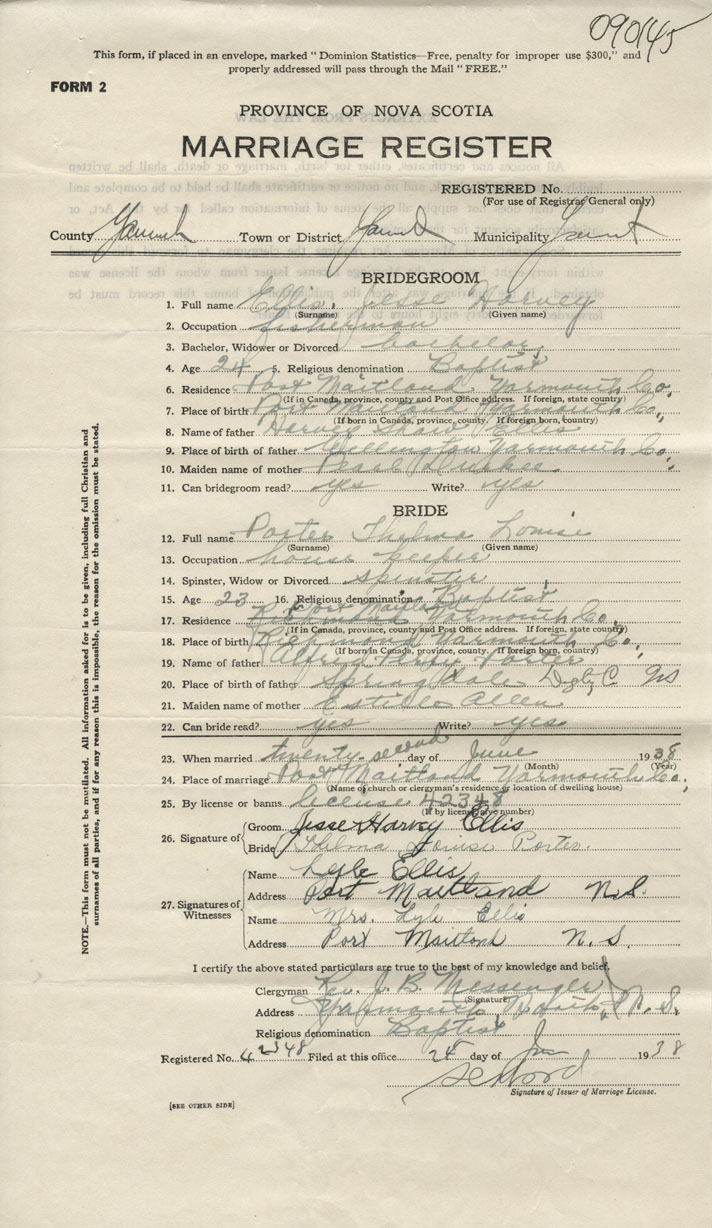 090145
This form, if placed in an envelope, marked "Dominion Statistics—Free, penalty for improper use $300," and
properly addressed will pass through the Mail "FREE."
FORM 2
PROVINCE OF NOVA SCOTIA
MARRIAGE REGISTER
REGISTERED No.
(For use of Registrar General only)
County Yarmouth Town or District Yarmouth Municipality Yarmouth
BRIDEGROOM
1. Full name Ellis, Jesse Harvey
(Surname) (Given name)
2. Occupation fisherman
3. Bachelor, Widower or Divorced bachelor
4. Age 24 5. Religious denomination Baptist
6. Residence Port Maitland Yarmouth Co.
(If in Canada, province, county and Post Office address. If foreign, state country)
7. Place of birth Port Maitland Yarmouth Co.
(If born in Canada, province, county. If foreign born, country)
8. Name of father Harvey Shaw Ellis
9. Place of birth of father Wellington Yarmouth Co.
10. Maiden name of mother Pearl Durkee
11. Can bridegroom read? yes Write? yes
BRIDE
12. Full name Porter Thelma Louise
(Surname) (Given name)
13. Occupation house keeper
14. Spinster, Widow or Divorced spinster
15. Age 23 16. Religious denomination Baptist
17. Residence Port Maitland Yarmouth Co.
(If in Canada, province, county and Post Office address. If foreign, state country)
18. Place of birth Richmond Yarmouth Co.
(If born in Canada, province, county. If foreign born, country)
19. Name of father Alfred Perry Porter
20. Place of birth of father Springdale Digby C. NS
21. Maiden name of mother Allen
22. Can bride read? yes Write? yes
23. When married twenty second day of June 1938
(Month) (Year)
24. Place of marriage Port Maitland Yarmouth Co.
(Name of church or clergyman's residence or location of dwelling house)
25. By license or banns license 42348
(If by license give number)
26. Signature of
Groom Jesse Harvey Ellis
Bride Thelma Louise Porter.
27. Signatures of Witnesses
Name Lyle Ellis
Address Port Maitland N.S.
Name Mrs. Lyle Ellis
Address Port Maitland N.S.
I certify the above stated particulars are true to the best of my knowledge and belief.
Clergyman Rev. J. B. Messenger
(Signature)
Address Yarmouth North, N.S.
Religious denomination Baptist
Registered No. 42348 Filed at this office 25 day of Jun 1938
Signature of Issuer of Marriage License.
[SEE OTHER SIDE]
NOTE.—This form must not be mutilated. All information asked for is to be given, including full Christian and
surnames of all parties, and if for any reason this is impossible, the reason for the omission must be stated.